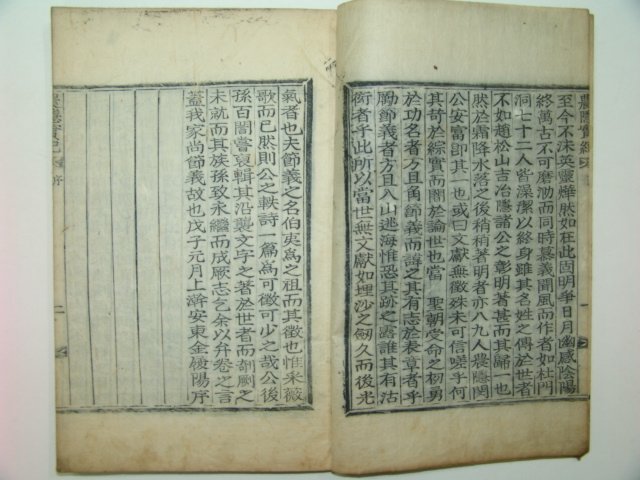 至今不沫英靈燁然如在此固明爭日月幽感陰陽
終萬古不可磨泐而同時慕義聞風而作者如杜門
洞七十二人皆潔以終身雖其名姓之傳於世者
不如趙松山吉冶隱諸公之彰明著甚而其歸一也
然於霜降水落之後稍稍著明者亦八九人農隱閔
公安富卽其一也或曰文獻無徵殊未可信嗟乎何
其苛於綜實而闇於論世也當 聖朝受命之初勇
於功名者方且角節義而誨之其有志於表章者乎
勵節義者方且入山逃海惟恐其跡之露誰其有沽
衒者乎此所以當世無文獻如埋沙之劒久而後光
氣者也夫節義之名伯夷爲之祖而其徵也惟采薇
歌而已然則公之軼詩一篇爲可徵可少之哉公後
孫百闇嘗裒輯其沿襲文字之著於世者而剞劂之
未就而其族孫致永繼而成厥志乞余以弁卷之言
蓋我家尚節義故也戊子元月上澣安東金陽序
農隱實紀 序
二